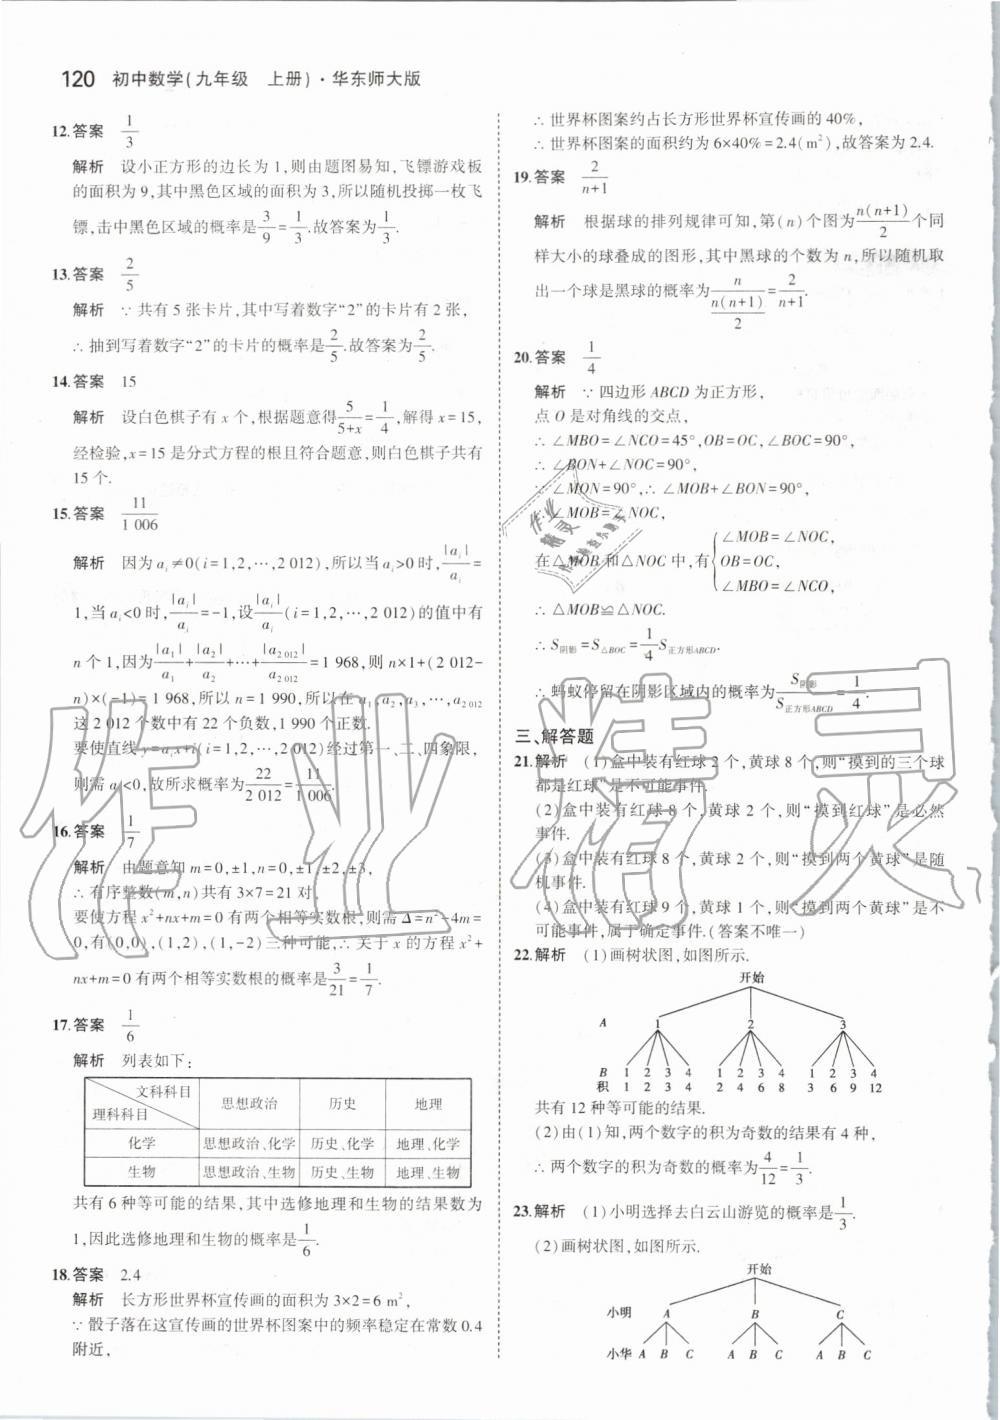 120 初中数学(九年级 上册)·华东师大版
12.答案 1/3
解析 设小正方形的边长为1,则由题图易知,飞镖游戏板
的面积为9,其中黑色区域的面积为3,所以随机投掷一枚飞
镖,击中黑色区域的概率是3/9=1/3.故答案为1/3.
13.答案 2/5
解析 ∵共有5张卡片,其中写着数字“2”的卡片有2张,
∴抽到写着数字“2”的卡片的概率是2/5.故答案为2/5.
14.答案 15
解析 设白色棋子有x个,根据题意得5/(5+x)=1/4,解得x=15,
经检验,x=15是分式方程的根且符合题意,则白色棋子共有
15个.
15.答案 11/1 006
解析 因为aᵢ≠0(i=1,2,…,2 012),所以当aᵢ>0时,|aᵢ|/aᵢ=
1,当aᵢ<0时,|aᵢ|/aᵢ=-1,设|aᵢ|/aᵢ(i=1,2,…,2 012)的值中有
n个1,因为|a₁|/a₁+|a₂|/a₂+…+|a₂ ₀₁₂|/a₂ ₀₁₂=1 968,则n×1+(2 012-
n)×(-1)=1 968,所以n=1 990,所以在a₁,a₂,a₃,…,a₂ ₀₁₂
这2 012个数中有22个负数,1 990个正数.
要使直线y=aᵢx+i(i=1,2,…,2 012)经过第一、二、四象限,
则需aᵢ<0,故所求概率为22/2 012=11/1 006.
16.答案 1/7
解析 由题意知m=0,±1,n=0,±1,±2,±3,
∴有序整数(m,n)共有3×7=21对.
要使方程x²+nx+m=0有两个相等实数根,则需Δ=n²-4m=
0,有(0,0),(1,2),(1,-2)三种可能,∴关于x的方程x²+
nx+m=0有两个相等实数根的概率是3/21=1/7.
17.答案 1/6
解析 列表如下:
文科科目 理科科目 思想政治 历史 地理
化学 思想政治、化学 历史、化学 地理、化学
生物 思想政治、生物 历史、生物 地理、生物
共有6种等可能的结果,其中选修地理和生物的结果数为
1,因此选修地理和生物的概率是1/6.
18.答案 2.4
解析 长方形世界杯宣传画的面积为3×2=6 m²,
∵骰子落在这宣传画的世界杯图案中的频率稳定在常数0.4
附近,
∴世界杯图案约占长方形世界杯宣传画的40%,
∴世界杯图案的面积约为6×40%=2.4(m²),故答案为2.4.
19.答案 2/(n+1)
解析 根据球的排列规律可知,第(n)个图为n(n+1)/2个同
样大小的球叠成的图形,其中黑球的个数为n,所以随机取
出一个球是黑球的概率为n/(n(n+1)/2)=2/(n+1).
20.答案 1/4
解析 ∵四边形ABCD为正方形,
点O是对角线的交点,
∴∠MBO=∠NCO=45°,OB=OC,∠BOC=90°,
∴∠BON+∠NOC=90°,
∵∠MON=90°,∴∠MOB+∠BON=90°,
∴∠MOB=∠NOC,
在△MOB和△NOC中,有{∠MOB=∠NOC,
OB=OC,
∠MBO=∠NCO,
∴△MOB≌△NOC.
∴S阴影=S△BOC=1/4S正方形ABCD.
∴蚂蚁停留在阴影区域内的概率为S阴影/S正方形ABCD=1/4.
三、解答题
21.解析 (1)盒中装有红球2个,黄球8个,则“摸到的三个球
都是红球”是不可能事件.
(2)盒中装有红球8个,黄球2个,则“摸到红球”是必然
事件.
(3)盒中装有红球8个,黄球2个,则“摸到两个黄球”是随
机事件.
(4)盒中装有红球9个,黄球1个,则“摸到两个黄球”是不
可能事件,属于确定事件.(答案不唯一)
22.解析 (1)画树状图,如图所示.
开始
A 1 2 3
B 1 2 3 4 1 2 3 4 1 2 3 4
积 1 2 3 4 2 4 6 8 3 6 9 12
共有12种等可能的结果.
(2)由(1)知,两个数字的积为奇数的结果有4种,
∴两个数字的积为奇数的概率为4/12=1/3.
23.解析 (1)小明选择去白云山游览的概率是1/3.
(2)画树状图,如图所示.
开始
小明 A B C
小华 A B C A B C A B C
作业精灵